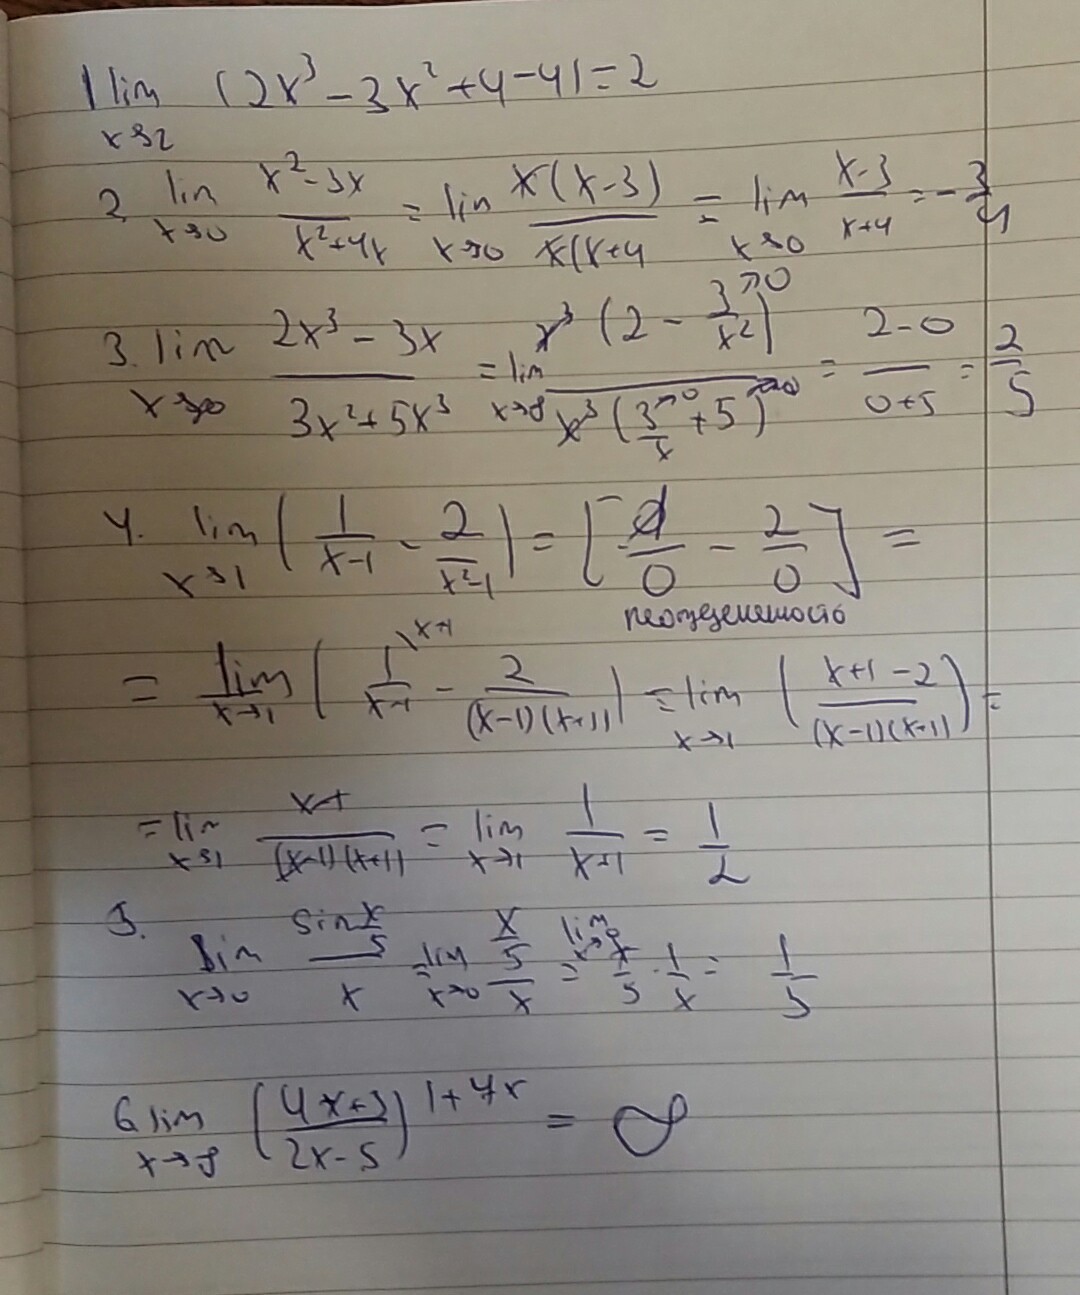 1 lim (2x³ - 3x² + 4 - 4) = 2
x→2
2. lim x→0 (x² - 3x)/(x² + 4x) = lim x→0 x(x-3)/x(x+4 = lim x→0 (x-3)/(x+4) = -3/4
3. lim x→∞ (2x³ - 3x)/(3x² + 5x³) = lim x→∞ x³(2 - 3/x² →0)/x³(3/x →0 + 5) = (2-0)/(0+5) = 2/5
4. lim x→1 (1/(x-1) - 2/(x²-1)) = [/0 - 2/0] =
неопределенность
= lim x→1 (1/(x-1) \x+1 - 2/((x-1)(x+1))) = lim x→1 ((x+1-2)/((x-1)(x+1))) =
= lim x→1 (x-1)/((x-1)(x+1)) = lim x→1 1/(x+1) = 1/2
5. lim x→0 (sin x/5)/x = lim x→0 (x/5)/x = lim x→0 x/5 · 1/x = 1/5
6. lim x→∞ ((4x+3)/(2x-5))^(1+7x) = ∞